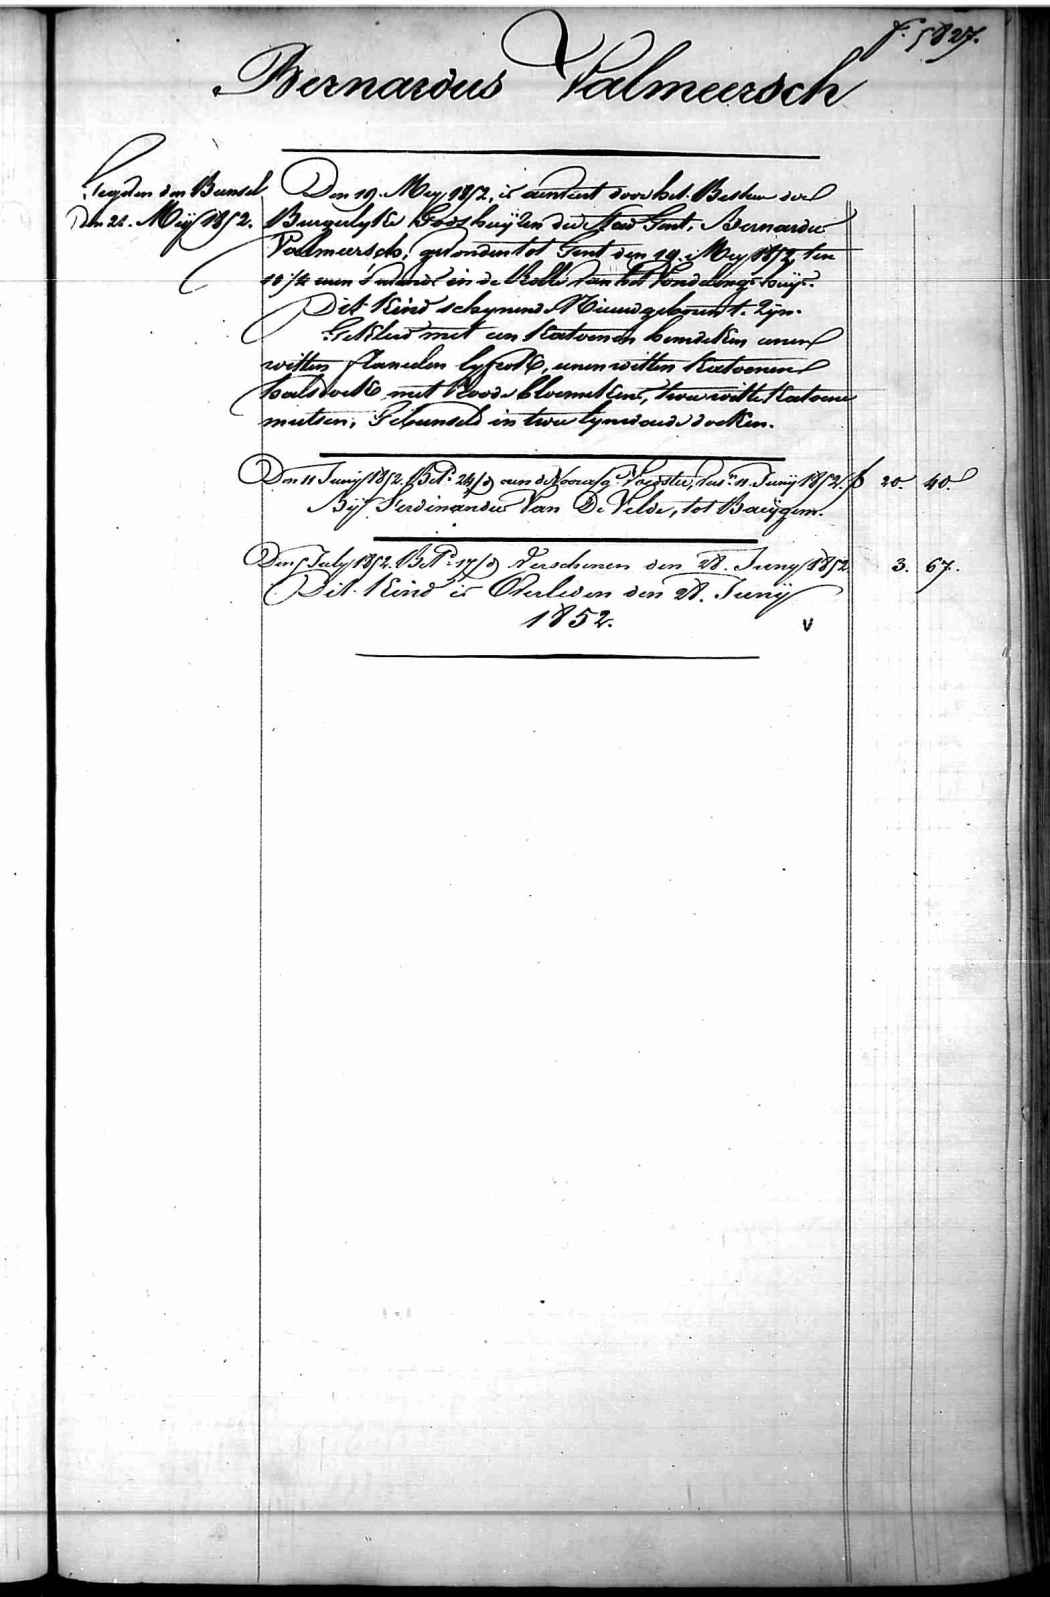 f. 5827.
Bernardus Valmeersch
den Bunsel
Den 22. Meij 1852.
Den 19. Mey 1852, is aenveert door het Bestier der
Burgerlyke Godshuijzen der Stad Gent, Bernardus
Valmeersch, gevonden tot Gent den 19. Mey 1852, ten
10 1/2 uren 's avonds in de Rolle van het Vondelings huijs.
Dit Kind schynende Nieuwgeboren t. Zijn.
Gekleed met een Katoenen hemdeken eenen
witten flanellen lyfrok, eenen witten Katoenen
halsdoek met Roode bloemekens, twee witte Katoene
mutsen, Gebunseld in twee lynwaede doeken.
Den 11 Junij 1852. Bet. 24/d aen de Voedster, 11. Junij 1852. f 20. 40.
Bij Ferdinandus Van De Velde, tot Baeijgem.
Den 5 July 1852. Bet. 17/d Verschenen den 28. Juny 1852 3. 67.
Dit Kind is Overleden den 28. Junij
1852. v